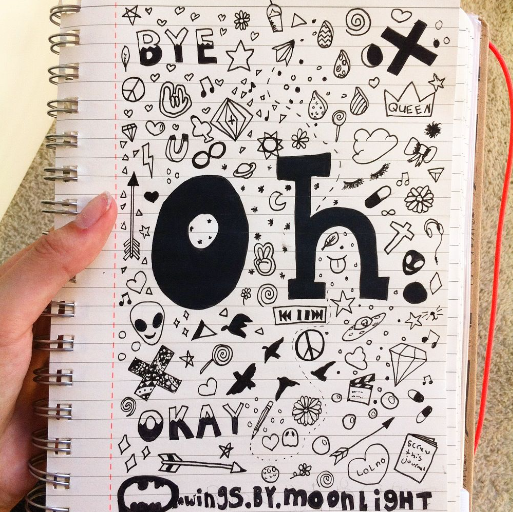 BYE
QUEEN
oh.
OKAY
LOL no
Screw
this
journal
wings.BY.moonLiGHT